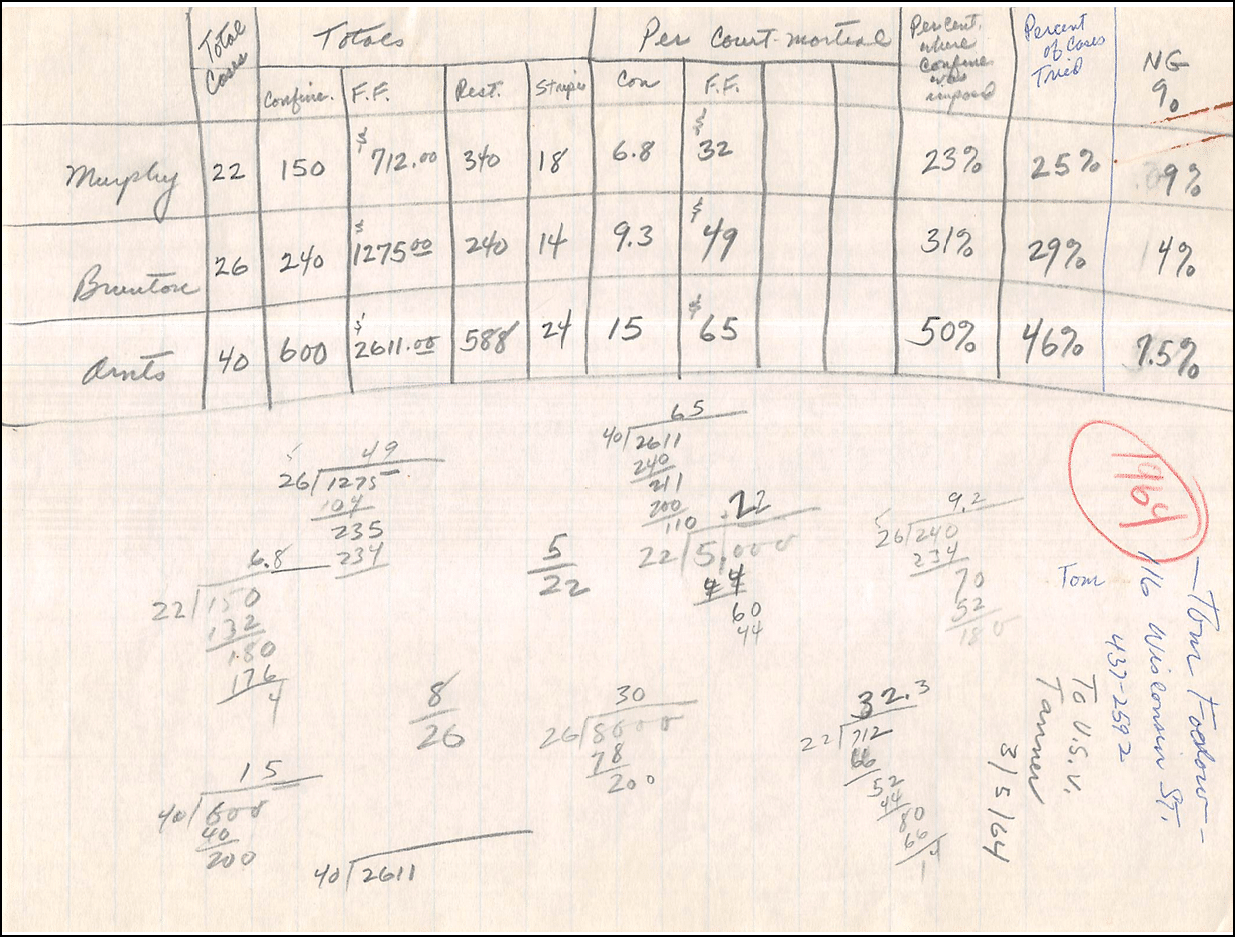 Total Cases Totals Per Court-martial Percent where confine was imposed Percent of Cases Tried NG %
Confine. F.F. Rest. Stripes Con F.F.
Murphy 22 150 $712.00 340 18 6.8 $32 23% 25% 9%
Brunton 26 240 $1275.00 240 14 9.3 $49 31% 29% 4%
Arnts 40 600 $2611.00 588 24 15 $65 50% 46% 7.5%
65
40 2611
240
211
200
110
49
26 1275
104
235
234
6.8
22 150
132
180
176
4
5
22
.22
22 5.000
4 4
60
44
9.2
26 240
234
70
52
180
8
26
30
26 8000
78
200
32.3
22 712
66
52
44
80
66
15
40 600
40
200
40 2611
1964
Tom
—Tom
116 Wisconsin St.
437-2592
To U.S. v.
Tanner
3/5/64